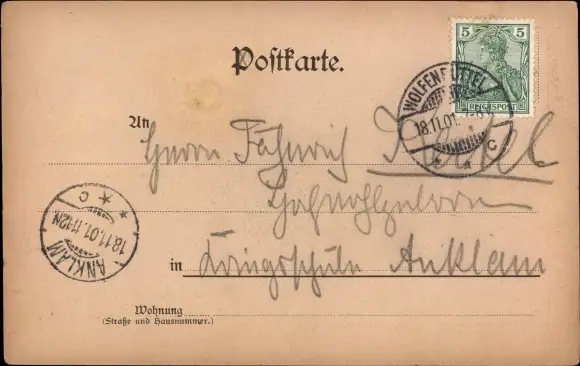 Postkarte.
5 5
REICHSPOST
WOLFENBÜTTEL
18.11.01.
C
An
Herrn Fähnrich
Hochwohlgeboren
in Kriegsschule Anklam
ANKLAM
18.11.01.11-12N
C
Wohnung
(Straße und Hausnummer.)